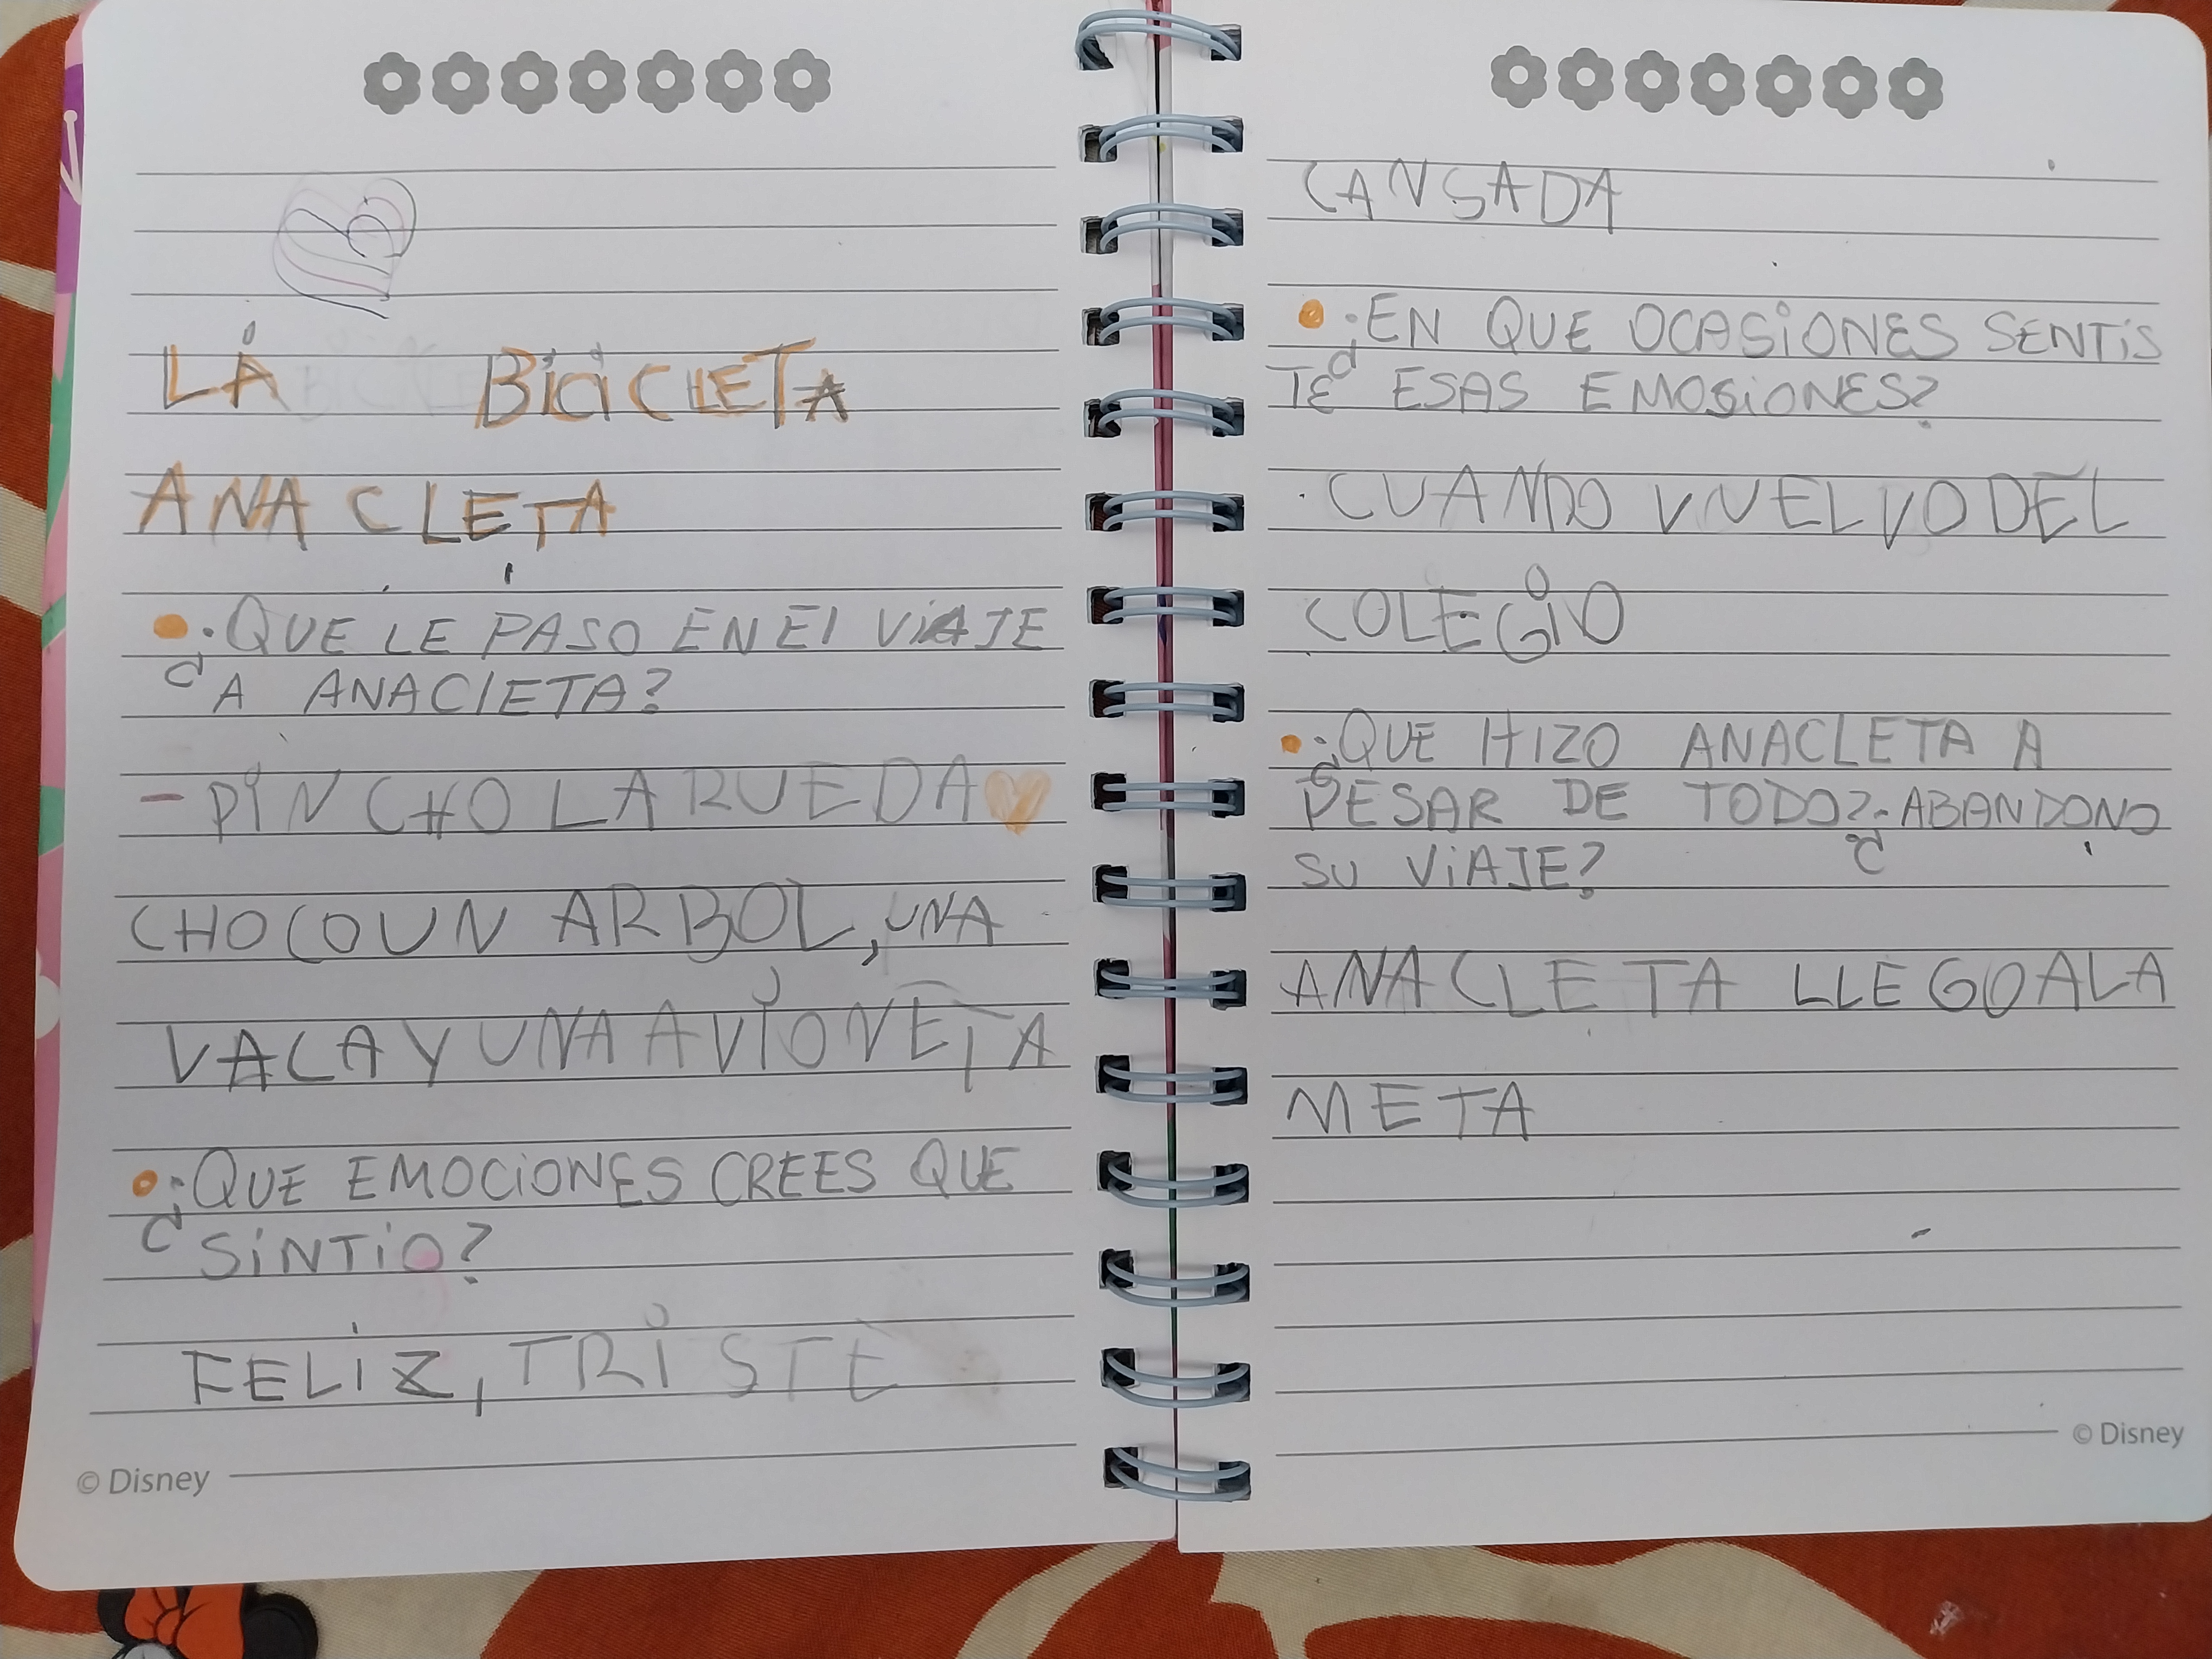 LA BiCiCLETA
ANACLETA
¿QUE LE PASO EN El ViAJE
A ANAClETA?
- PiNCHO LA RUEDA
CHOCO UN ARBOL, UNA
VACA Y UNA AViONETA
¿QUE EMOCiONES CREES QUE
SiNTiO?
FELiZ, TRiSTE
© Disney
CANSADA
¿EN QUE OCASiONES SENTiS
TE ESAS EMOSiONES?
CUANDO VUELVO DEL
COLEGiO
¿QUE HIZO ANACLETA A
PESAR DE TODO? ¿ABANDONO
SU ViAJE?
ANACLETA LLEGO A LA
META
© Disney